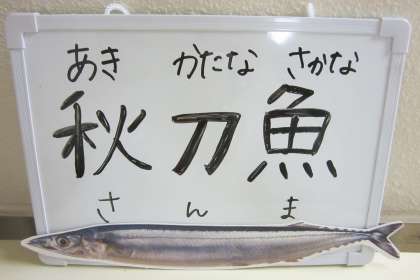 あき かたな さかな
秋刀魚
さんま